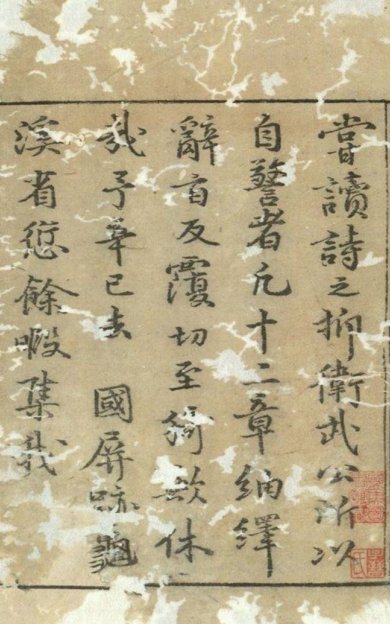 嘗讀詩之抑衛武公所以
自警者凡十二章紬繹
辭旨反覆切至猗歟休
哉予年已去 國屏跡龜
溪省愆餘暇集我